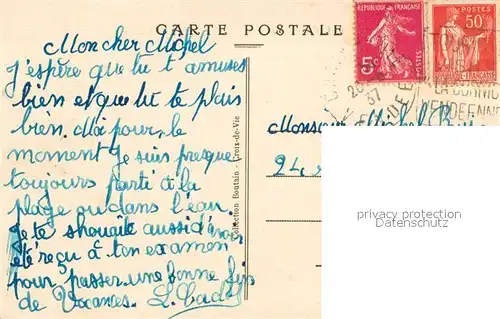 CARTE POSTALE
Mon cher Michel
j'espère que tu t'amuses
bien et que tu te plais
bien. Moi pour le
moment Je suis presque
toujours parti à la
plage ou dans l'eau.
Je te shouaite aussi d'avoir
été reçu à ton examen
pour passer une bonne fin
de Vacances.
Collection Boutain - Croix-de-Vie
RÉPUBLIQUE FRANÇAISE
5c
POSTES
POSTES
50c
RÉPUBLIQUE FRANÇAISE
37
LA CORNICHE
VENDEENNE
Monsieur Michel
24
privacy protection
Datenschutz